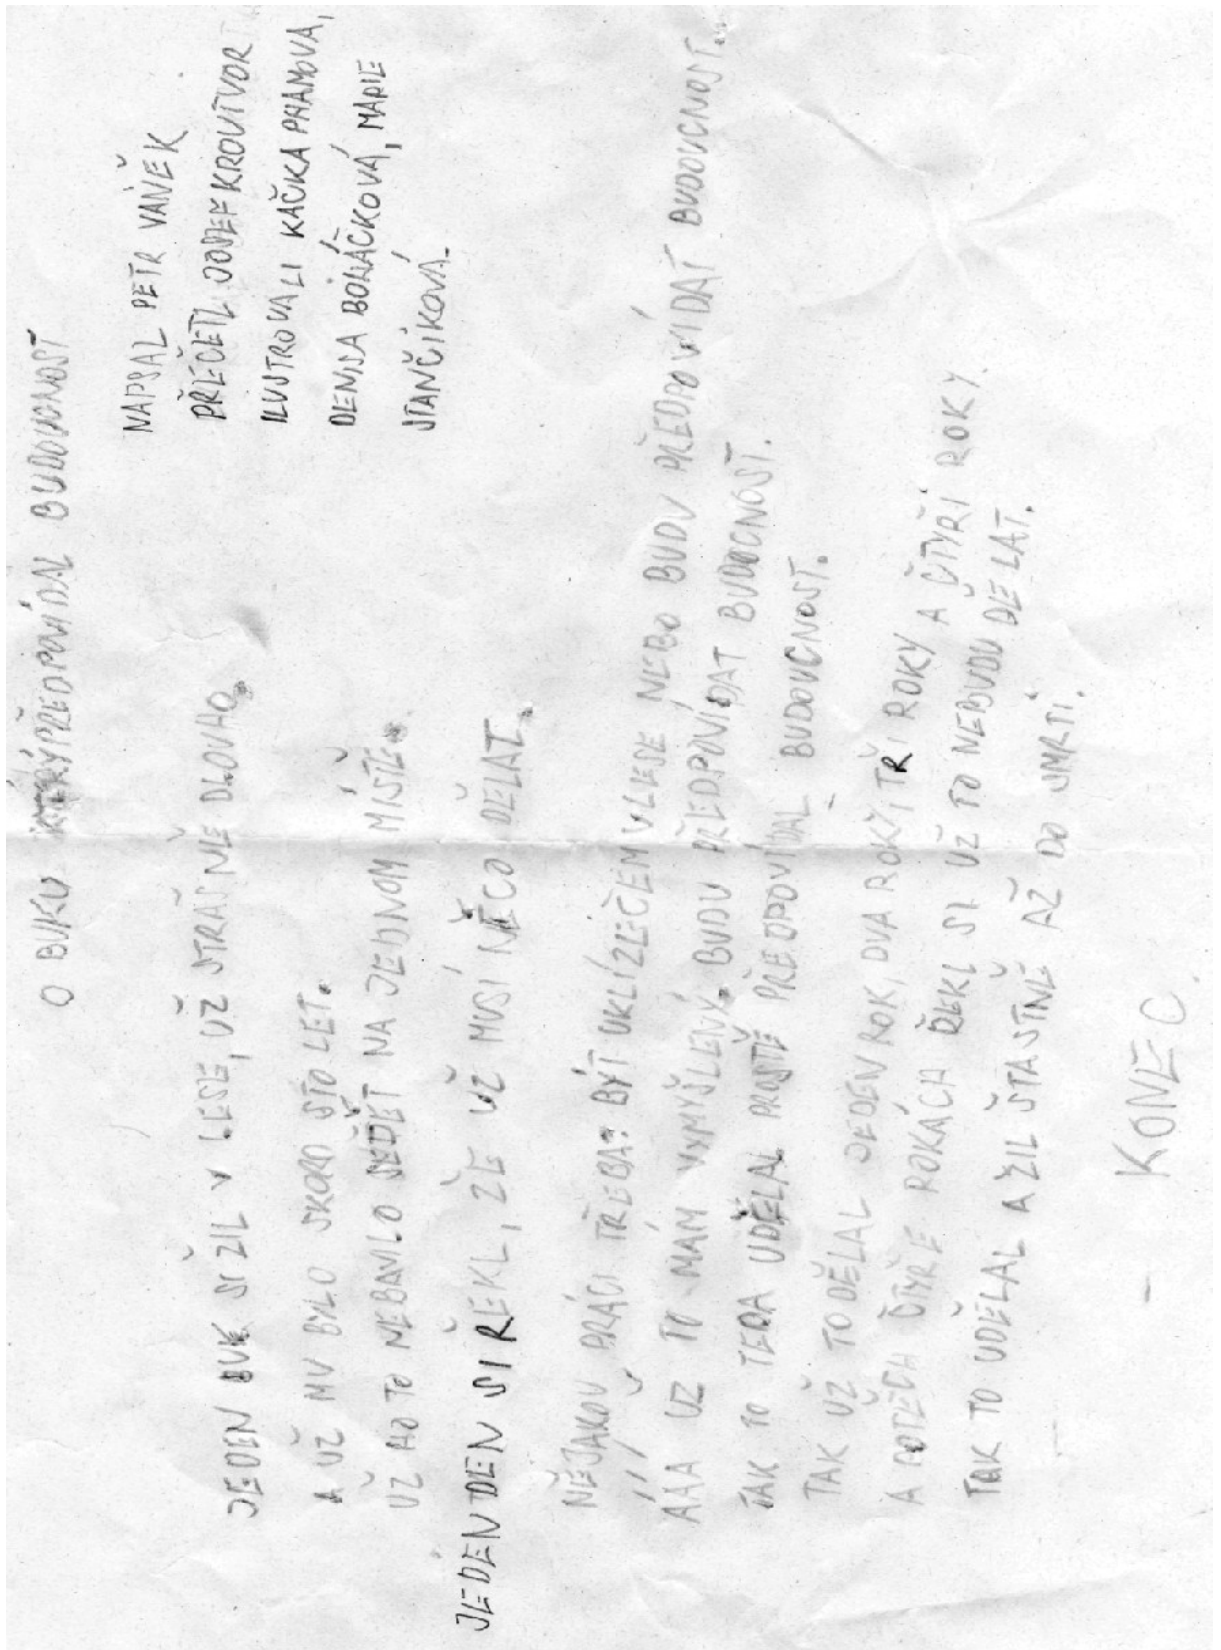 O BUKU KTERÝ PŘEDPOVÍDAL BUDOUCNOST
NAPSAL PETR VANĚK
PŘEČETL JOSEF KROUTVOR
ILUSTROVALI KAČKA PHAMOVÁ,
DENISA BOHÁČKOVÁ, MARIE
STANČÍKOVÁ.
JEDEN BUK SI ŽIL V LESE, UŽ STRAŠNĚ DLOUHO.
A UŽ MU BYLO SKORO STO LET.
UŽ HO TO NEBAVILO SEDĚT NA JEDNOM MÍSTĚ.
JEDEN DEN SI ŘEKL, ŽE UŽ MUSÍ NĚCO DĚLAT.
NĚJAKOU PRÁCI TŘEBA: BÝT UKLÍZEČEM V LESE NEBO BUDU PŘEDPOVÍDAT BUDOUCNOST...
ÁÁÁ UŽ TO MÁM VYMYŠLENÝ. BUDU PŘEDPOVÍDAT BUDOUCNOST.
TAK TO TEDA UDĚLAL PROSTĚ PŘEDPOVÍDAL BUDOUCNOST.
TAK UŽ TO DĚLAL JEDEN ROK, DVA ROKY, TŘI ROKY A ČTYŘI ROKY.
A POTĚCH ČTYŘE ROKÁCH ŘEKL SI UŽ TO NEBUDU DĚLAT.
TAK TO UDĚLAL A ŽIL ŠŤASTNĚ AŽ DO SMRTI.
- KONEC